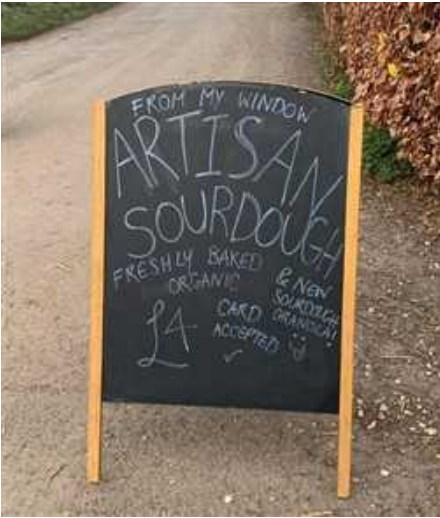 FROM MY WINDOW
ARTISAN
SOURDOUGH
FRESHLY BAKED
ORGANIC
£4
CARD
ACCEPTED
& NEW
SOURDOUGH
GRANOLA!